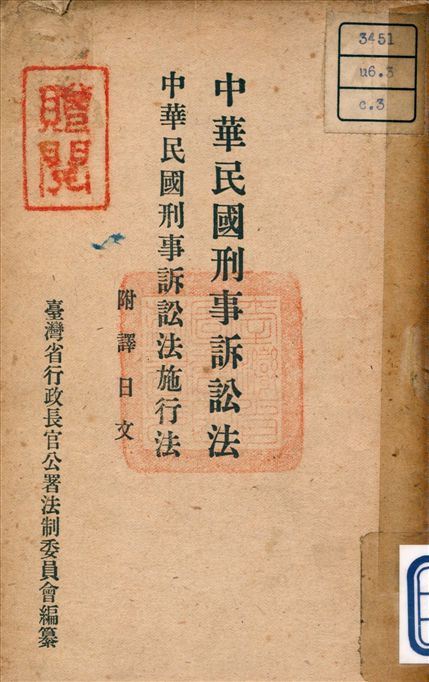 3451
u6.3
c.3
中華民國刑事訴訟法
中華民國刑事訴訟法施行法
附譯日文
臺灣省行政長官公署法制委員會編纂
贈閱